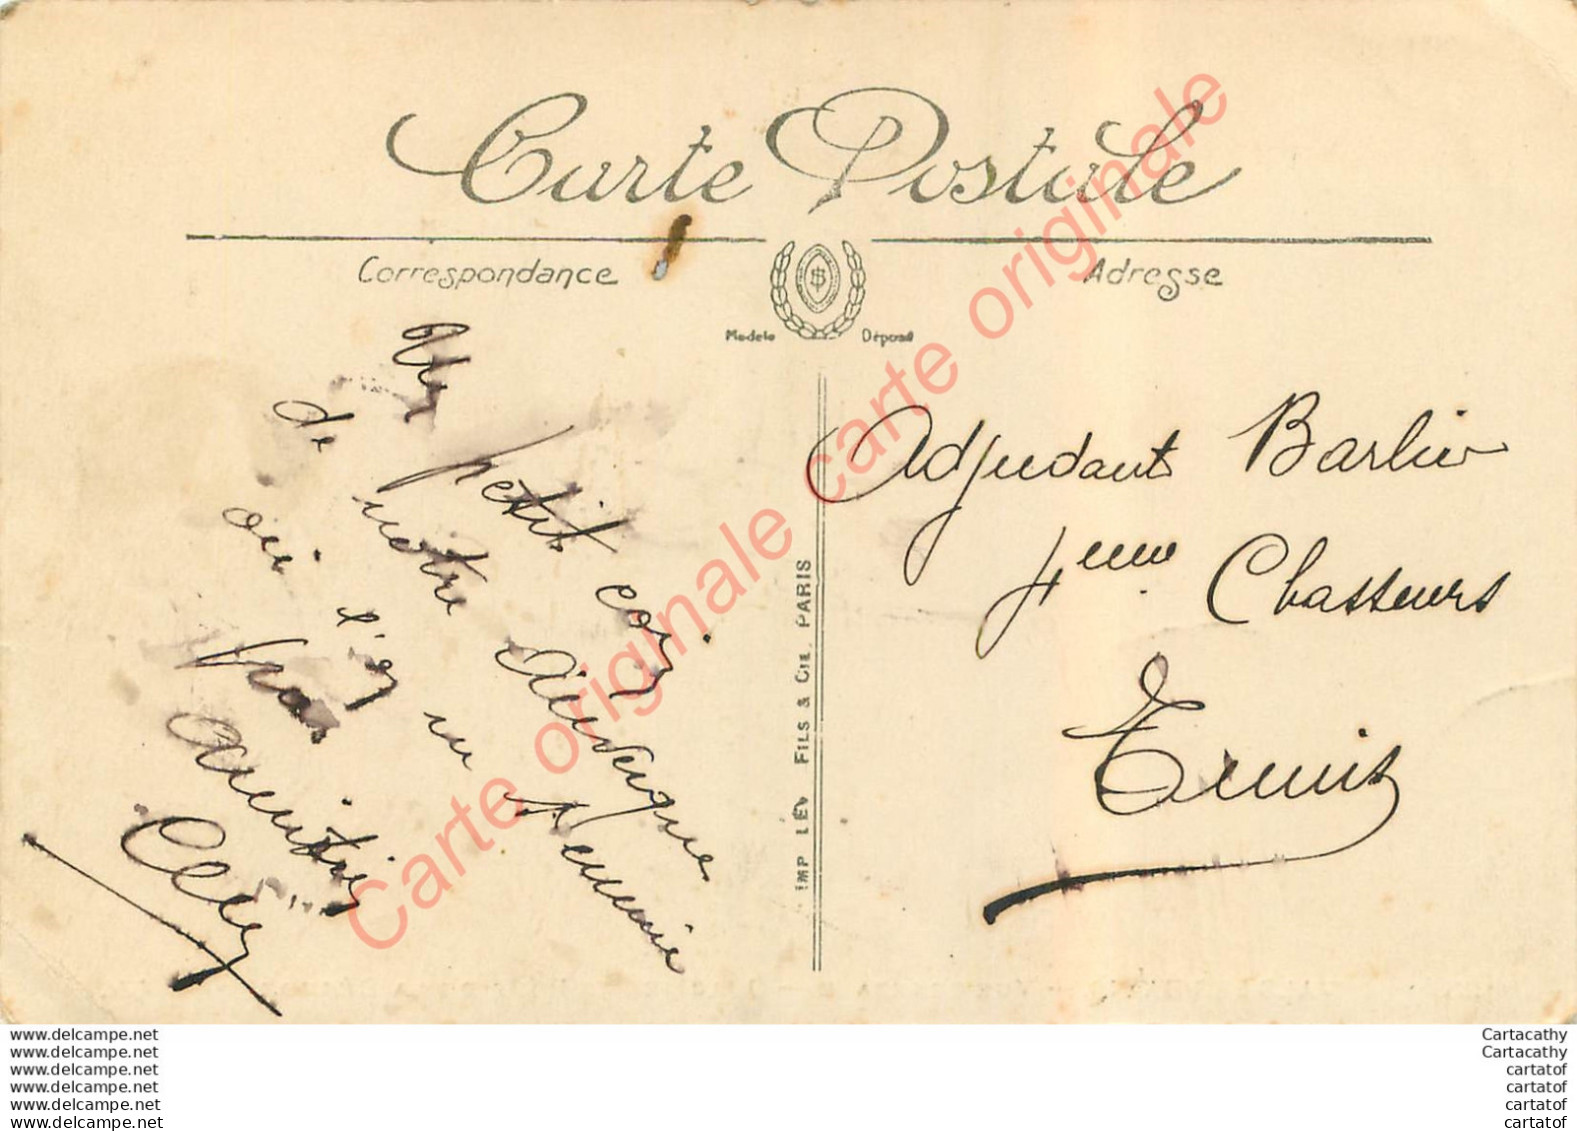 Carte Postale
Correspondance
Adresse
Modele Déposé
Un petit coin
de notre Auvergne
où l'on
pas
Amitiés
Adjudant Barbier
4eme Chasseurs
Tunis
IMP LÉVY FILS & CIE. PARIS
Carte originale carte originale
www.delcampe.net
www.delcampe.net
www.delcampe.net
www.delcampe.net
www.delcampe.net
www.delcampe.net
Cartacathy
Cartacathy
cartatof
cartatof
cartatof
cartatof